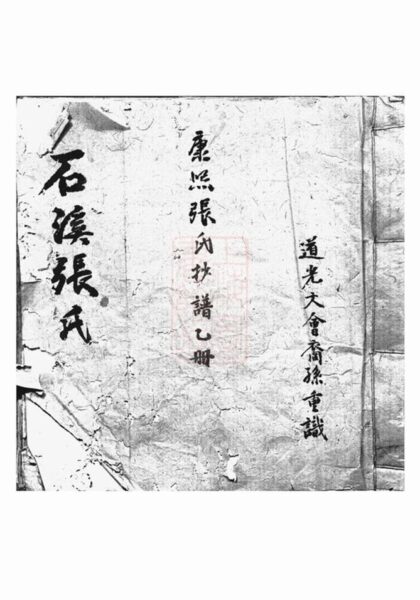 道光大會裔孫重識
康熙張氏抄譜乙冊
石溪張氏